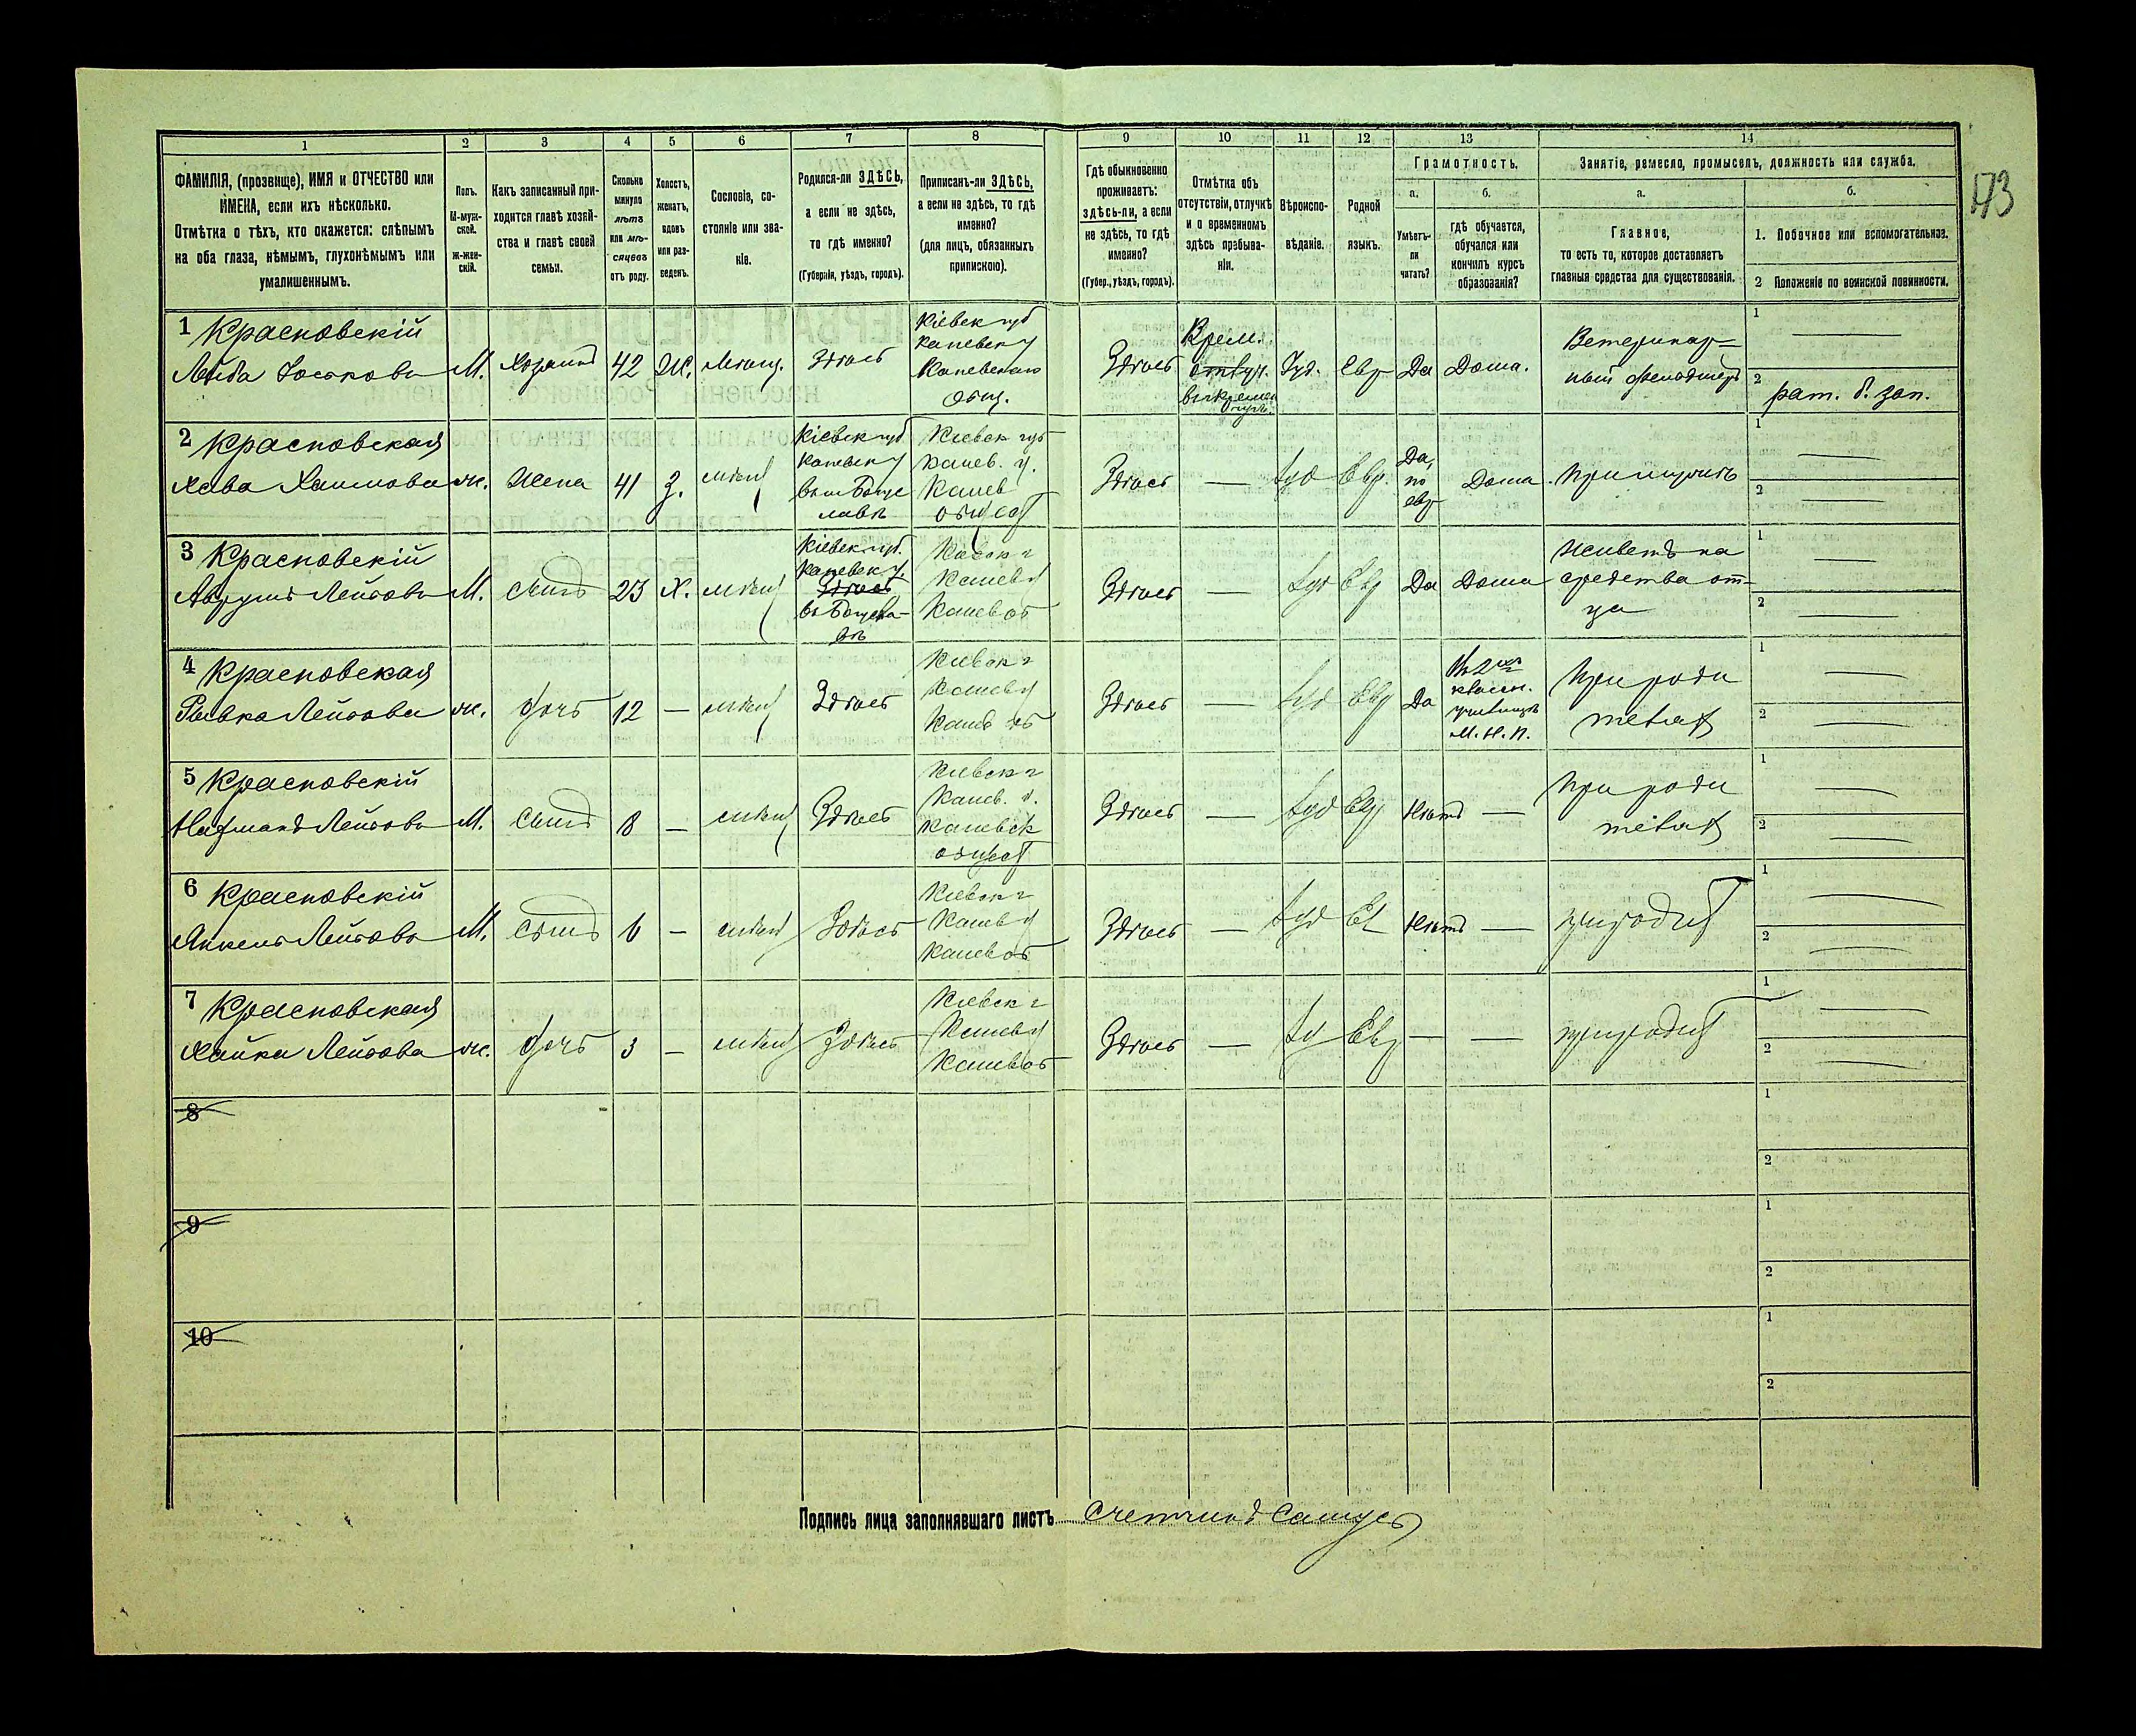 173
1 2 3 4 5 6 7 8 9 10 11 12 13 14
ФАМИЛІЯ, (прозвище), ИМЯ и ОТЧЕСТВО или
ИМЕНА, если ихъ нѣсколько.
Отмѣтка о тѣхъ, кто окажется: слѣпымъ
на оба глаза, нѣмымъ, глухонѣмымъ или
умалишеннымъ.
Полъ.
М-муж-
ской.
Ж-жен-
скій.
Какъ записанный при-
ходится главѣ хозяй-
ства и главѣ своей
семьи.
Сколько
минуло
лѣтъ
или мѣ-
сяцевъ
отъ роду.
Холостъ,
женатъ,
вдовъ
или раз-
веденъ.
Сословіе, со-
стояніе или зва-
ніе.
Родился-ли ЗДѢСЬ,
а если не здѣсь,
то гдѣ именно?
(Губернія, уѣздъ, городъ).
Приписанъ-ли ЗДѢСЬ,
а если не здѣсь, то гдѣ
именно?
(для лицъ, обязанныхъ
припискою).
Гдѣ обыкновенно
проживаетъ:
здѣсь-ли, а если
не здѣсь, то гдѣ
именно?
(Губер., уѣздъ, городъ).
Отмѣтка объ
отсутствіи, отлучкѣ
и о временномъ
здѣсь пребыва-
ніи.
Вѣроиспо-
вѣданіе.
Родной
языкъ.
Грамотность.
а.
Умѣетъ-
ли
читать?
б.
Гдѣ обучается,
обучался или
кончилъ курсъ
образованія?
Занятіе, ремесло, промыселъ, должность или служба.
а.
Главное,
то есть то, которое доставляетъ
главныя средства для существованія.
б.
1. Побочное или вспомогательное.
2 Положеніе по воинской повинности.
1 Красновскій
Лейба Іоськовъ
М.
Хозяинъ
42
Ж.
Мѣщ.
Здѣсь
Кіевск губ
каневск у
Каневскаго
общ.
Здѣсь
Врем.
Іуд.
Евр
Да
Дома.
Ветеринар-
ный фельдшеръ
1
2
рат. б. зап.
2 Красновская
Хава Хаимова
ж.
Жена
41
З.
мѣщ
Кіевск губ
каневск у
Кіевск губ
канев. у.
Канев
общест
Здѣсь
—
Іуд
Евр.
Да,
по
евр
Дома
При мужѣ
1
2
3 Красновскій
Аврумъ Лейбовъ
М.
Сынъ
23
Х.
мѣщ
Кіевск губ.
каневск у.
Здѣсь
Кіевск г
Канев у
Канев об
Здѣсь
—
Іуд
Евр
Да
Дома
Живетъ на
средства от-
ца
1
2
4 Красновская
Рывка Лейбова
ж.
дочь
12
—
мѣщ
Здѣсь
Кіевск г
Канев у
Канев об
Здѣсь
—
Іуд
Евр
Да
Въ 2хъ
классн.
училищѣ
М. Н. П.
При роди
телях
1
2
5 Красновскій
Лейбовъ
М.
Сынъ
8
—
мѣщ
Здѣсь
Кіевск г
Канев. у.
Каневск
общест
Здѣсь
—
Іуд
Евр
Нѣтъ
—
При роди
телях
1
2
6 Красновскій
Янкель Лейбовъ
М.
Сынъ
6
—
мѣщ
Здѣсь
Кіевск г
Канев у
Канев об
Здѣсь
—
Іуд
Ев
Нѣтъ
—
при родит
1
2
7 Красновская
Хайка Лейбова
ж.
дочь
3
—
мѣщ
Здѣсь
Кіевск г
Канев у
Канев об
Здѣсь
—
Іуд
Евр
—
—
при родит
1
2
8
1
2
9
1
2
10
1
2
Подпись лица заполнявшаго листъ Счетчикъ